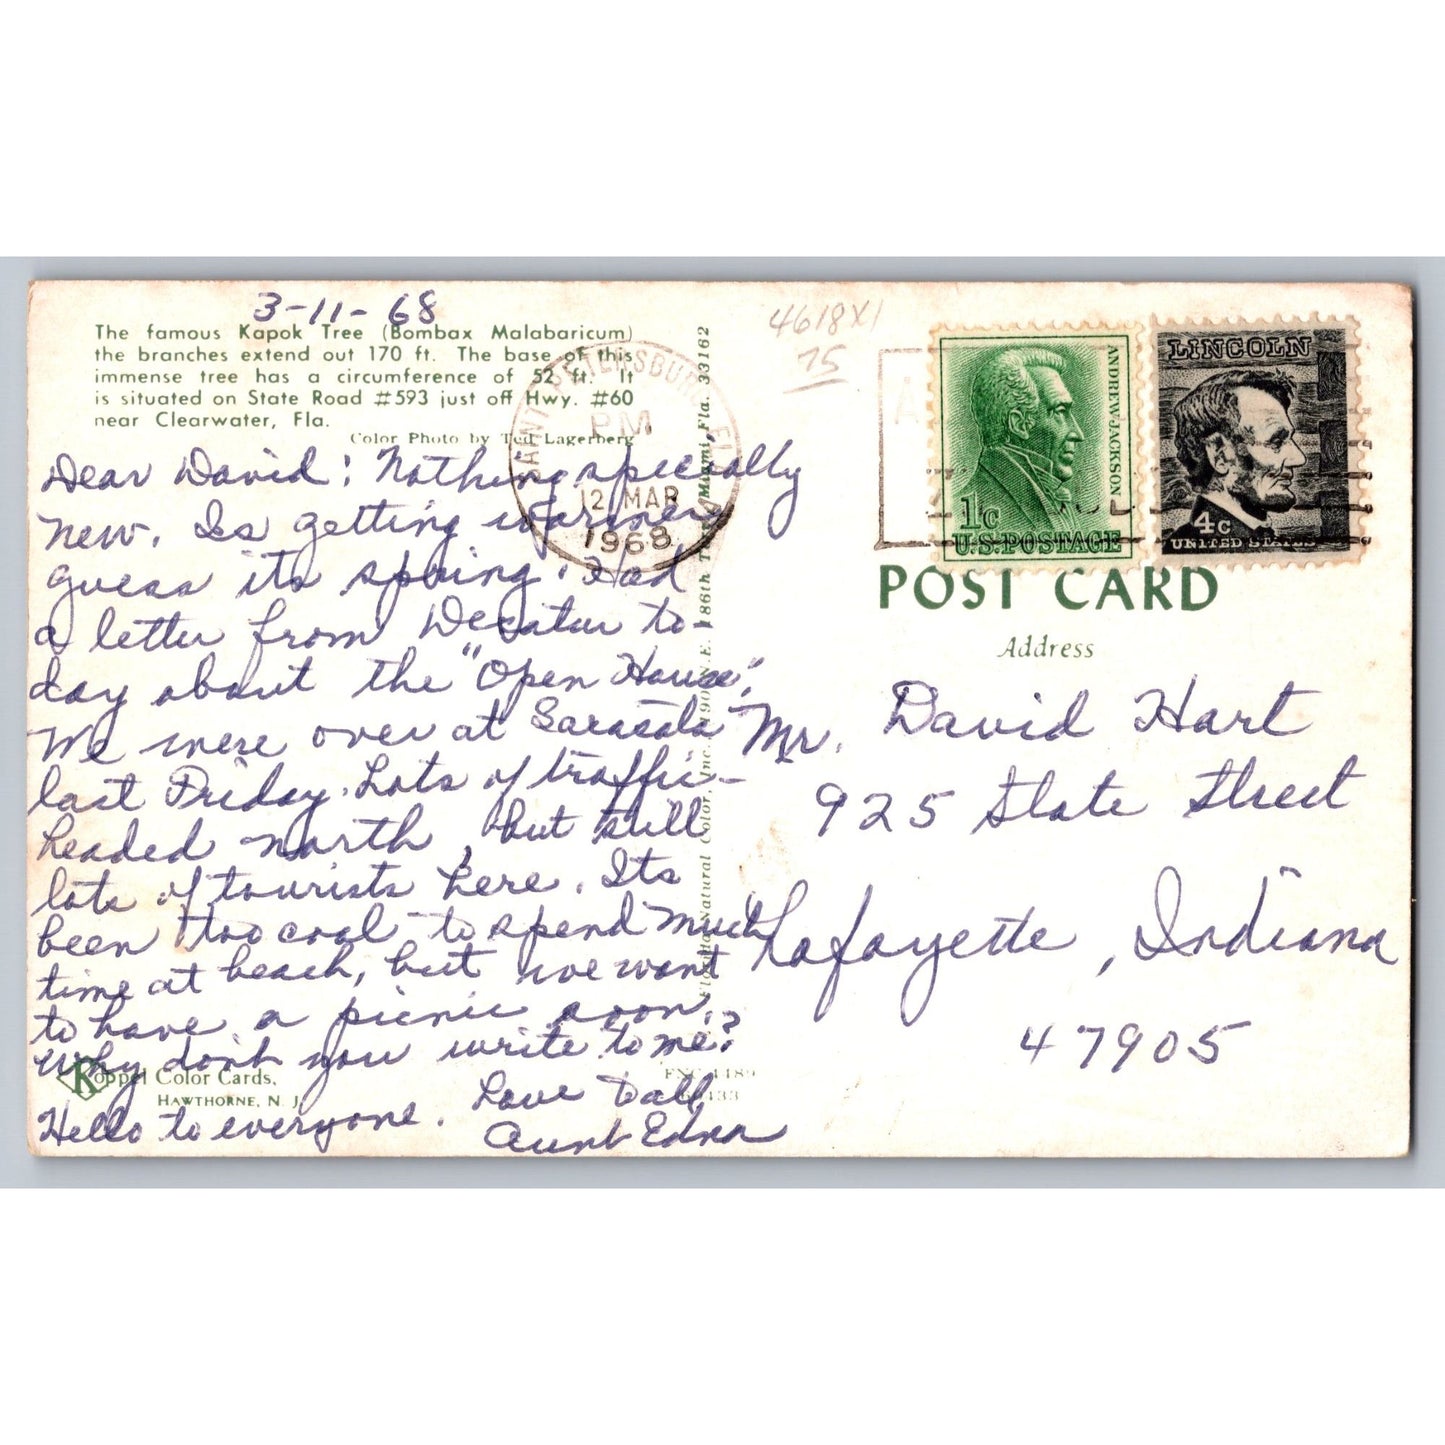 3-11-68
The famous Kapok Tree (Bombax Malabaricum)
the branches extend out 170 ft. The base of this
immense tree has a circumference of 52 ft. It
is situated on State Road #593 just off Hwy. #60
near Clearwater, Fla.
Color Photo by Ted Lagerberg
Dear David: Nothing specially
new. Is getting warmer,
guess its spring. Had
a letter from Decatur to-
day about the "Open House".
We were over at Sarasota
last Friday. Lots of traffic
headed north, but still
lots of tourists here. Its
been too cool to spend much
time at beach, but we want
to have a picnic soon.
Why don't you write to me?
Hello to everyone. Love to all,
Aunt Edna
Koppel Color Cards,
HAWTHORNE, N. J.
SAINT PETERSBURG, FL
PM
12 MAR
1968
Florida Natural Color, Inc. N.E. 186th Miami, Fla. 33162
4618X1
75
ANDREW JACKSON
1c
U.S. POSTAGE
LINCOLN
4c
UNITED STATES
POST CARD
Address
Mr. David Hart
925 State Street
Lafayette, Indiana
47905